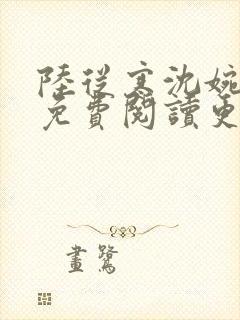 陸從寒沈婉
免費閱讀更
畫鷺